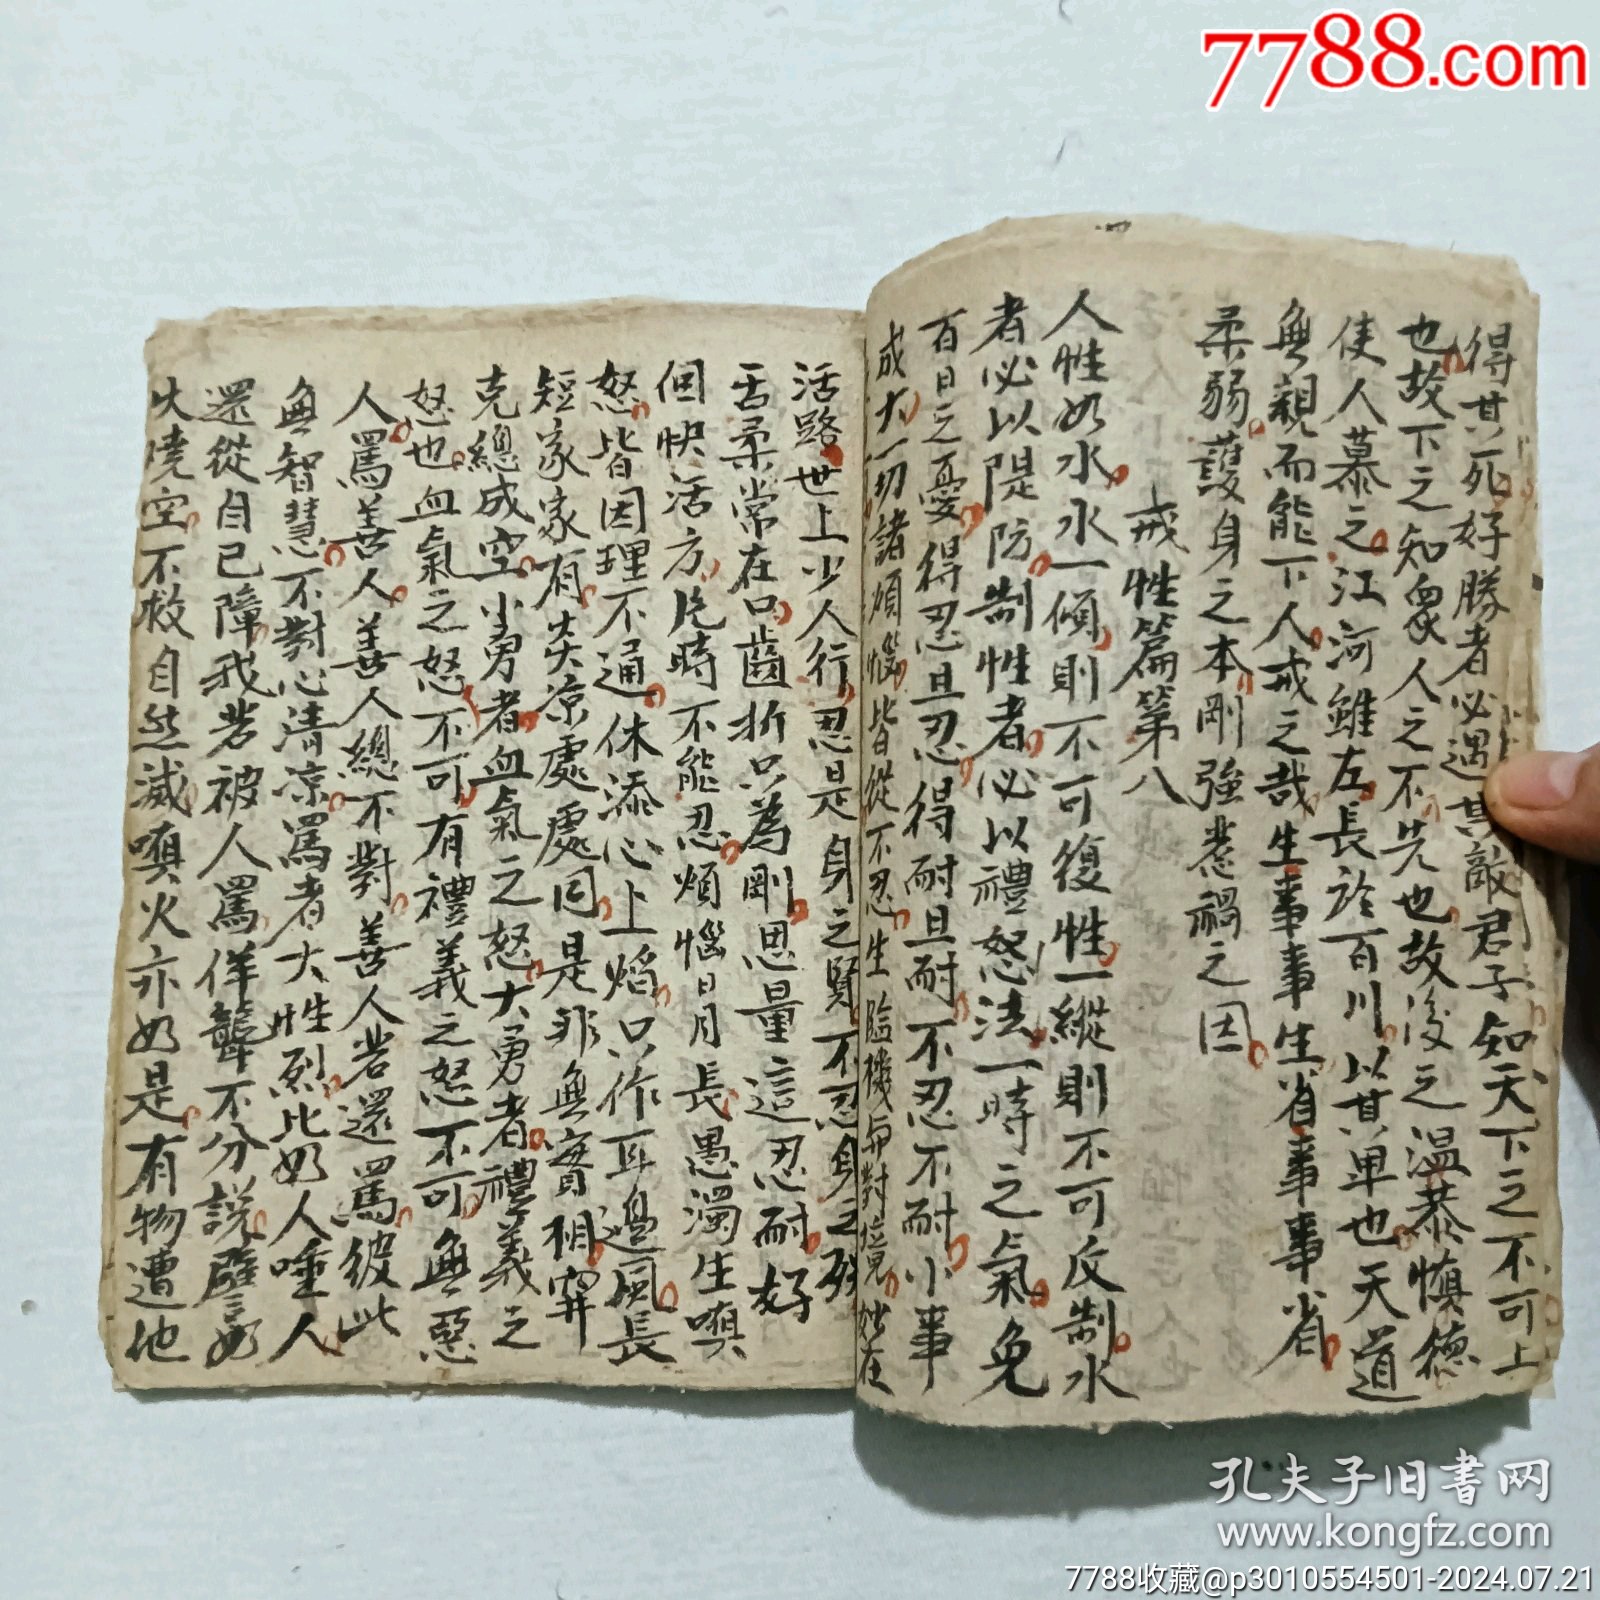 7788.com
得其死好勝者必遇其敵君子知天下之不可上
也故下之知衆人之不先也故後之温恭慎德
使人慕之江河雖左長於百川以其卑也天道
無親而能下人戒之哉生事事生省事事省
柔弱護身之本剛強惹禍之因
戒性篇第八
人性如水水一傾則不可復性一縱則不可反制水
者必以隄防制性者必以禮怒法一時之氣免
百日之憂得忍且忍得耐且耐不忍不耐小事
成大一切諸煩惱皆從不忍生臨機與對境妙在
活路世上少人行忍是身之賢不忍身之殃
舌柔常在口齒折只為剛思量這忍耐好
個快活方片時不能忍煩惱日月長愚濁生嗔
怒皆因理不通休添心上焰只作耳邊風長
短家家有炎凉處處同是非無實相究
克總成空小勇者血氣之怒大勇者禮義之
怒也血氣之怒不可有禮義之怒不可無惡
人罵善人善人總不對善人若還罵彼此
無智慧不對心清凉罵者大性烈比如人唾人
還從自己障我若被人罵佯聾不分説譬如
火燒空不救自然滅嗔火亦如是有物遭他
孔夫子旧书网
www.kongfz.com
7788收藏@p3010554501-2024.07.21